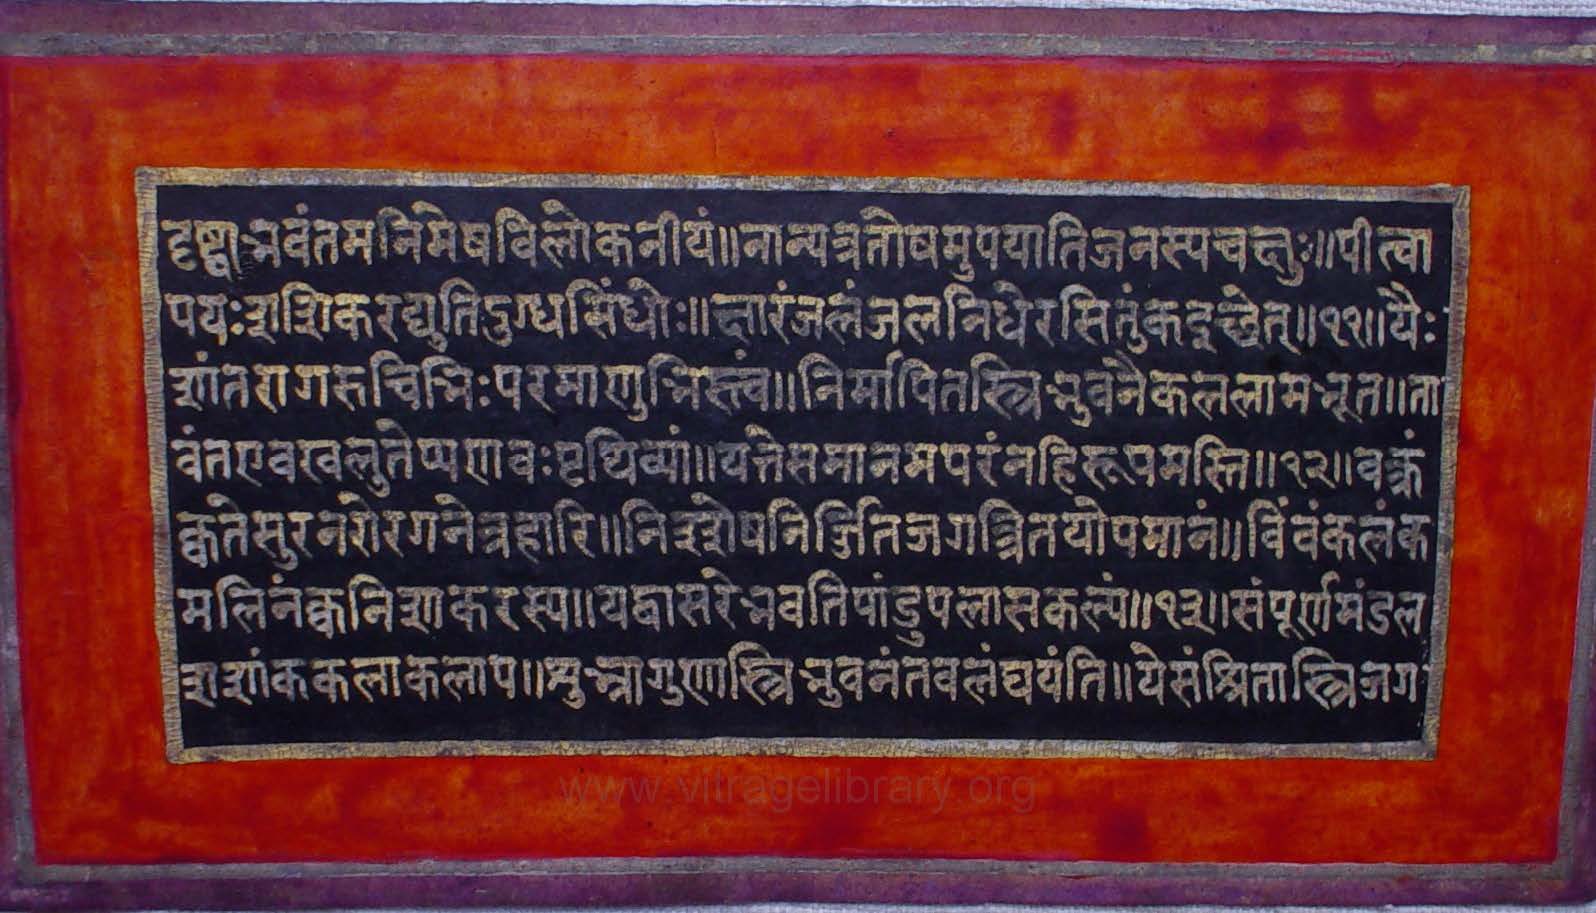 दृष्ट्वाभवंतमनिमेषविलोकनीयं॥नान्यत्रतोषमुपयातिजनस्यचक्षुः॥पीत्वा
पयःशशिकरद्युतिदुग्धसिंधोः॥क्षारंजलंजलनिधेरसितुंकइच्छेत्॥११॥यैः
शांतरागरुचिभिःपरमाणुभिस्त्वं॥निर्मापितस्त्रिभुवनैकललामभूत॥ता
वंतएवखलुतेप्यणवःपृथिव्यां॥यत्तेसमानमपरंनहिरूपमस्ति॥१२॥वक्त्रं
क्वतेसुरनरोरगनेत्रहारि॥निश्शेषनिर्ज्जितजगत्त्रितयोपमानं॥विंवंकलंक
मलिनंक्वनिशाकरस्य॥यद्वासरेभवतिपांडुपलासकल्पं॥१३॥संपूर्णमंडल
शशांककलाकलाप॥शुभ्रागुणास्त्रिभुवनंतवलंघयंति॥येसंश्रितास्त्रिजग
www.vitragelibrary.org